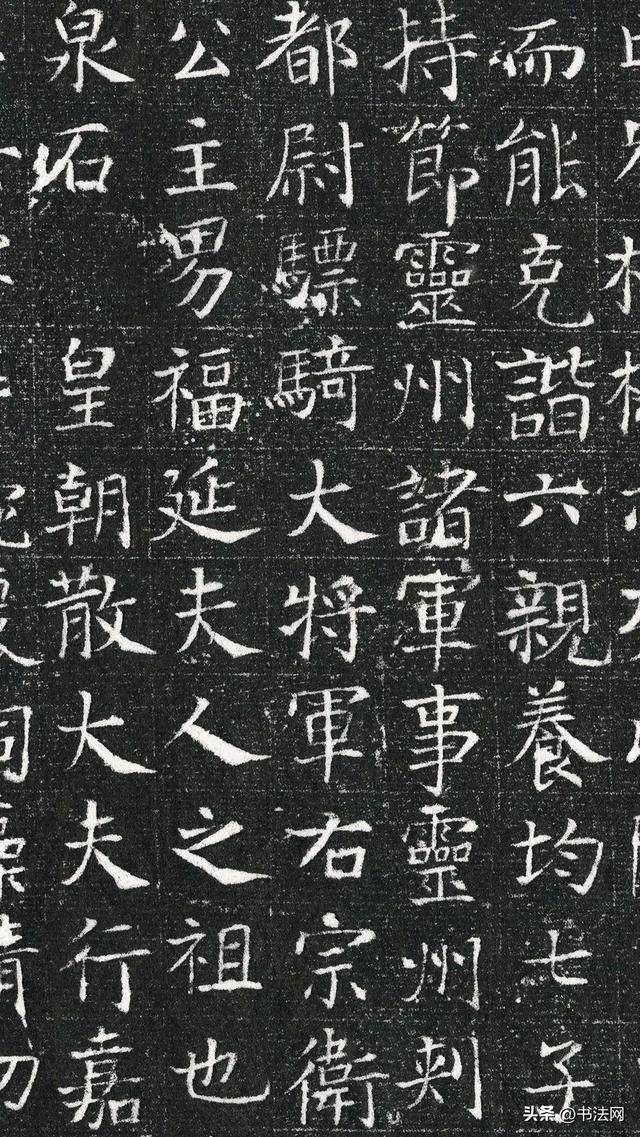 而能克諧六親養均七子
持節靈州諸軍事靈州刺
都尉驃騎大將軍右宗衛
公主男福延夫人之祖也
泉石 皇朝散大夫行嘉
头条 @书法网